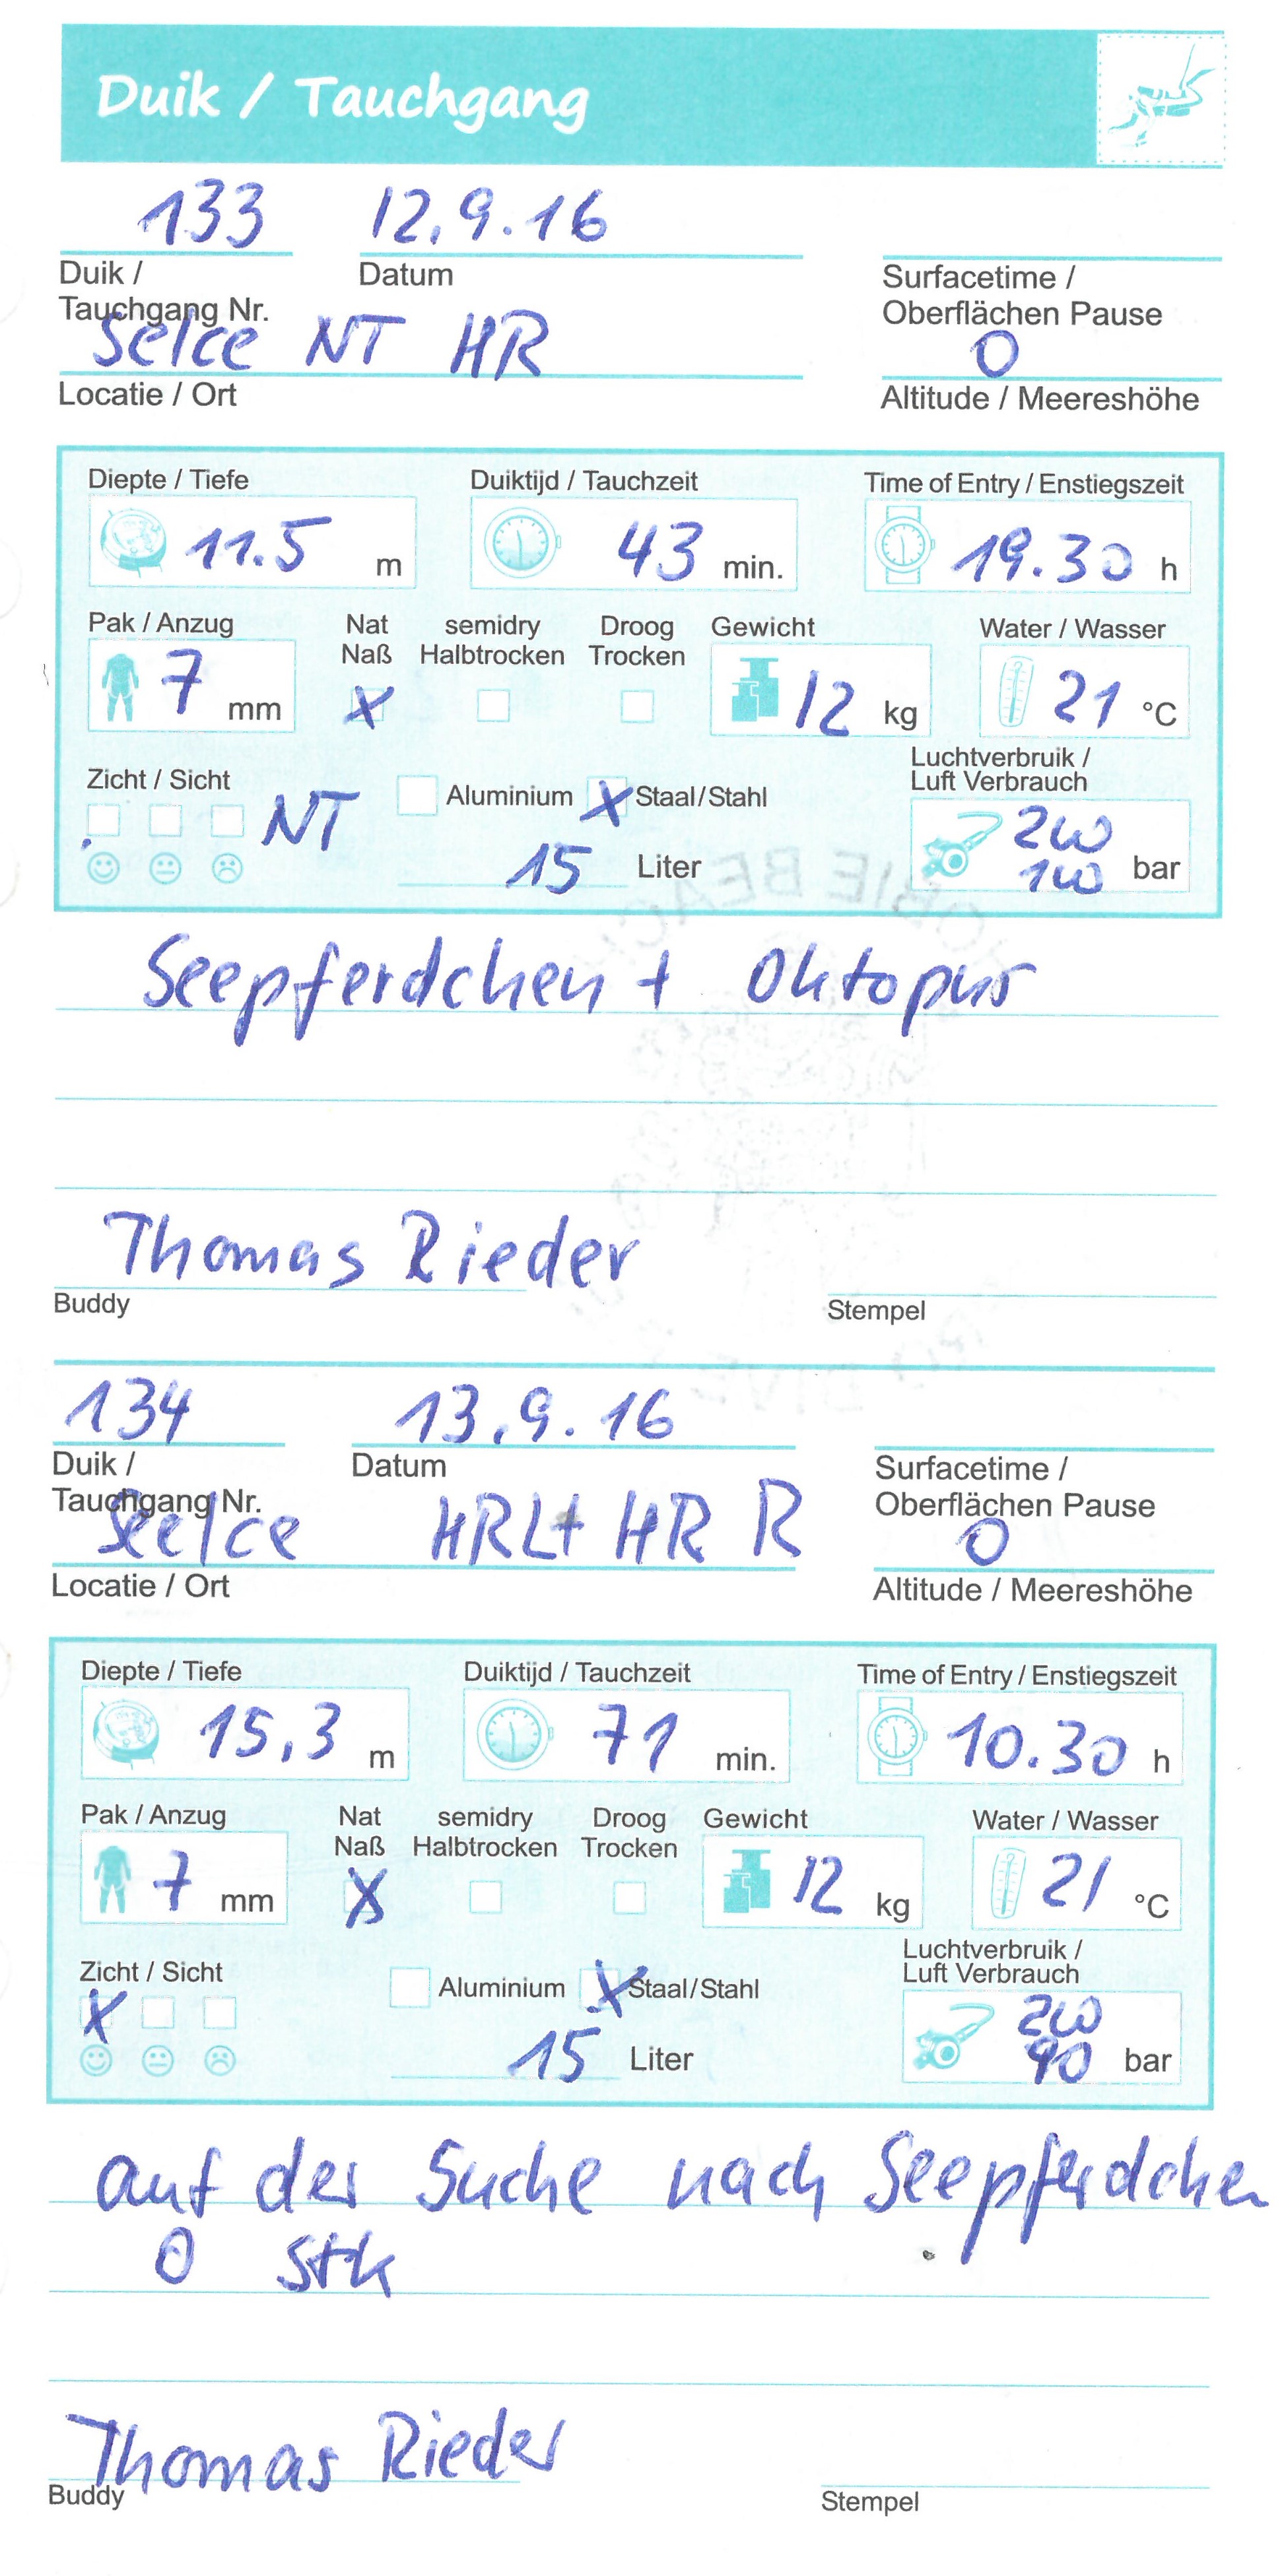 Duik / Tauchgang
133 12.9.16
Duik / Datum Surfacetime /
Tauchgang Nr. Oberflächen Pause
Selce NT HR 0
Locatie / Ort Altitude / Meereshöhe
Diepte / Tiefe Duiktijd / Tauchzeit Time of Entry / Enstiegszeit
11.5 m 43 min. 19.30 h
Pak / Anzug Nat semidry Droog Gewicht Water / Wasser
Naß Halbtrocken Trocken
7 mm X 12 kg 21 °C
Luchtverbruik /
Zicht / Sicht Aluminium X Staal/Stahl Luft Verbrauch
NT 200
15 Liter 100 bar
Seepferdchen + Oktopus
Thomas Rieder
Buddy Stempel
134 13.9.16
Duik / Datum Surfacetime /
Tauchgang Nr. Oberflächen Pause
Seelce HRL+ HR R 0
Locatie / Ort Altitude / Meereshöhe
Diepte / Tiefe Duiktijd / Tauchzeit Time of Entry / Enstiegszeit
15,3 m 71 min. 10.30 h
Pak / Anzug Nat semidry Droog Gewicht Water / Wasser
Naß Halbtrocken Trocken
7 mm X 12 kg 21 °C
Luchtverbruik /
Zicht / Sicht Aluminium X Staal/Stahl Luft Verbrauch
X 200
15 Liter 90 bar
auf der Suche nach Seepferdchen
0 Stk
Thomas Rieder
Buddy Stempel